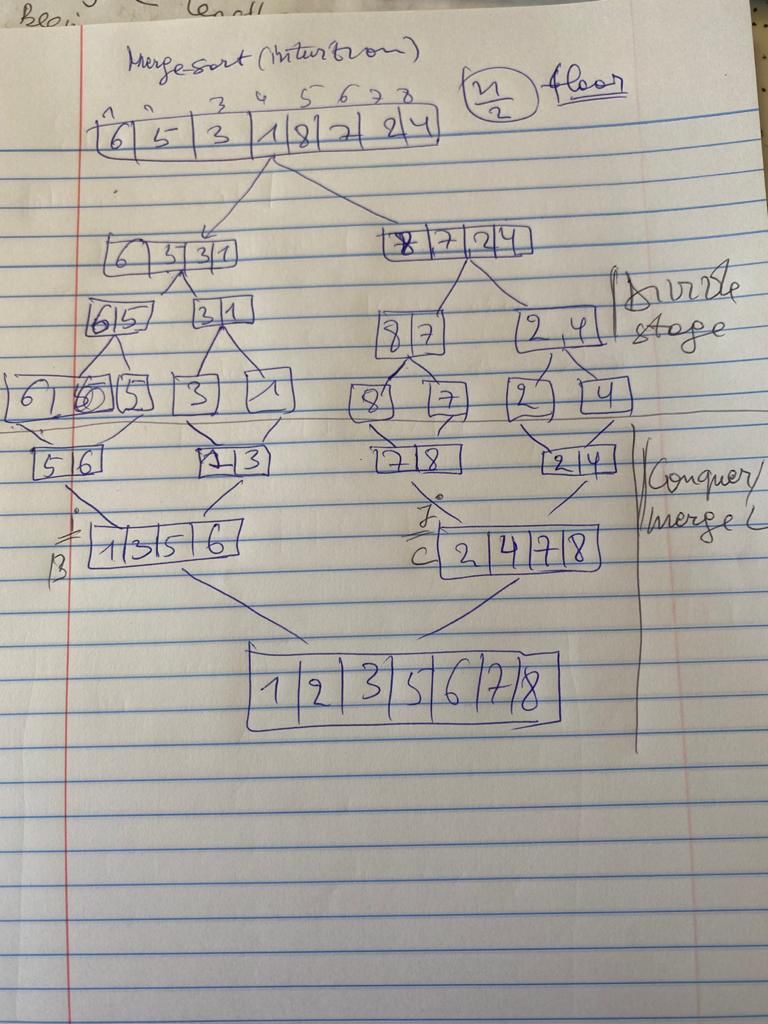 Merge-sort (intuition)
n/2 floor
1 2 3 4 5 6 7 8
6 5 3 1 8 7 2 4
6 5 3 1 8 7 2 4
6 5 3 1 8 7 2 4
Divide
stage
6 5 3 1 8 7 2 4
5 6 1 3 7 8 2 4
Conquer/
merge
i j
B 1 3 5 6 C 2 4 7 8
1 2 3 5 6 7 8